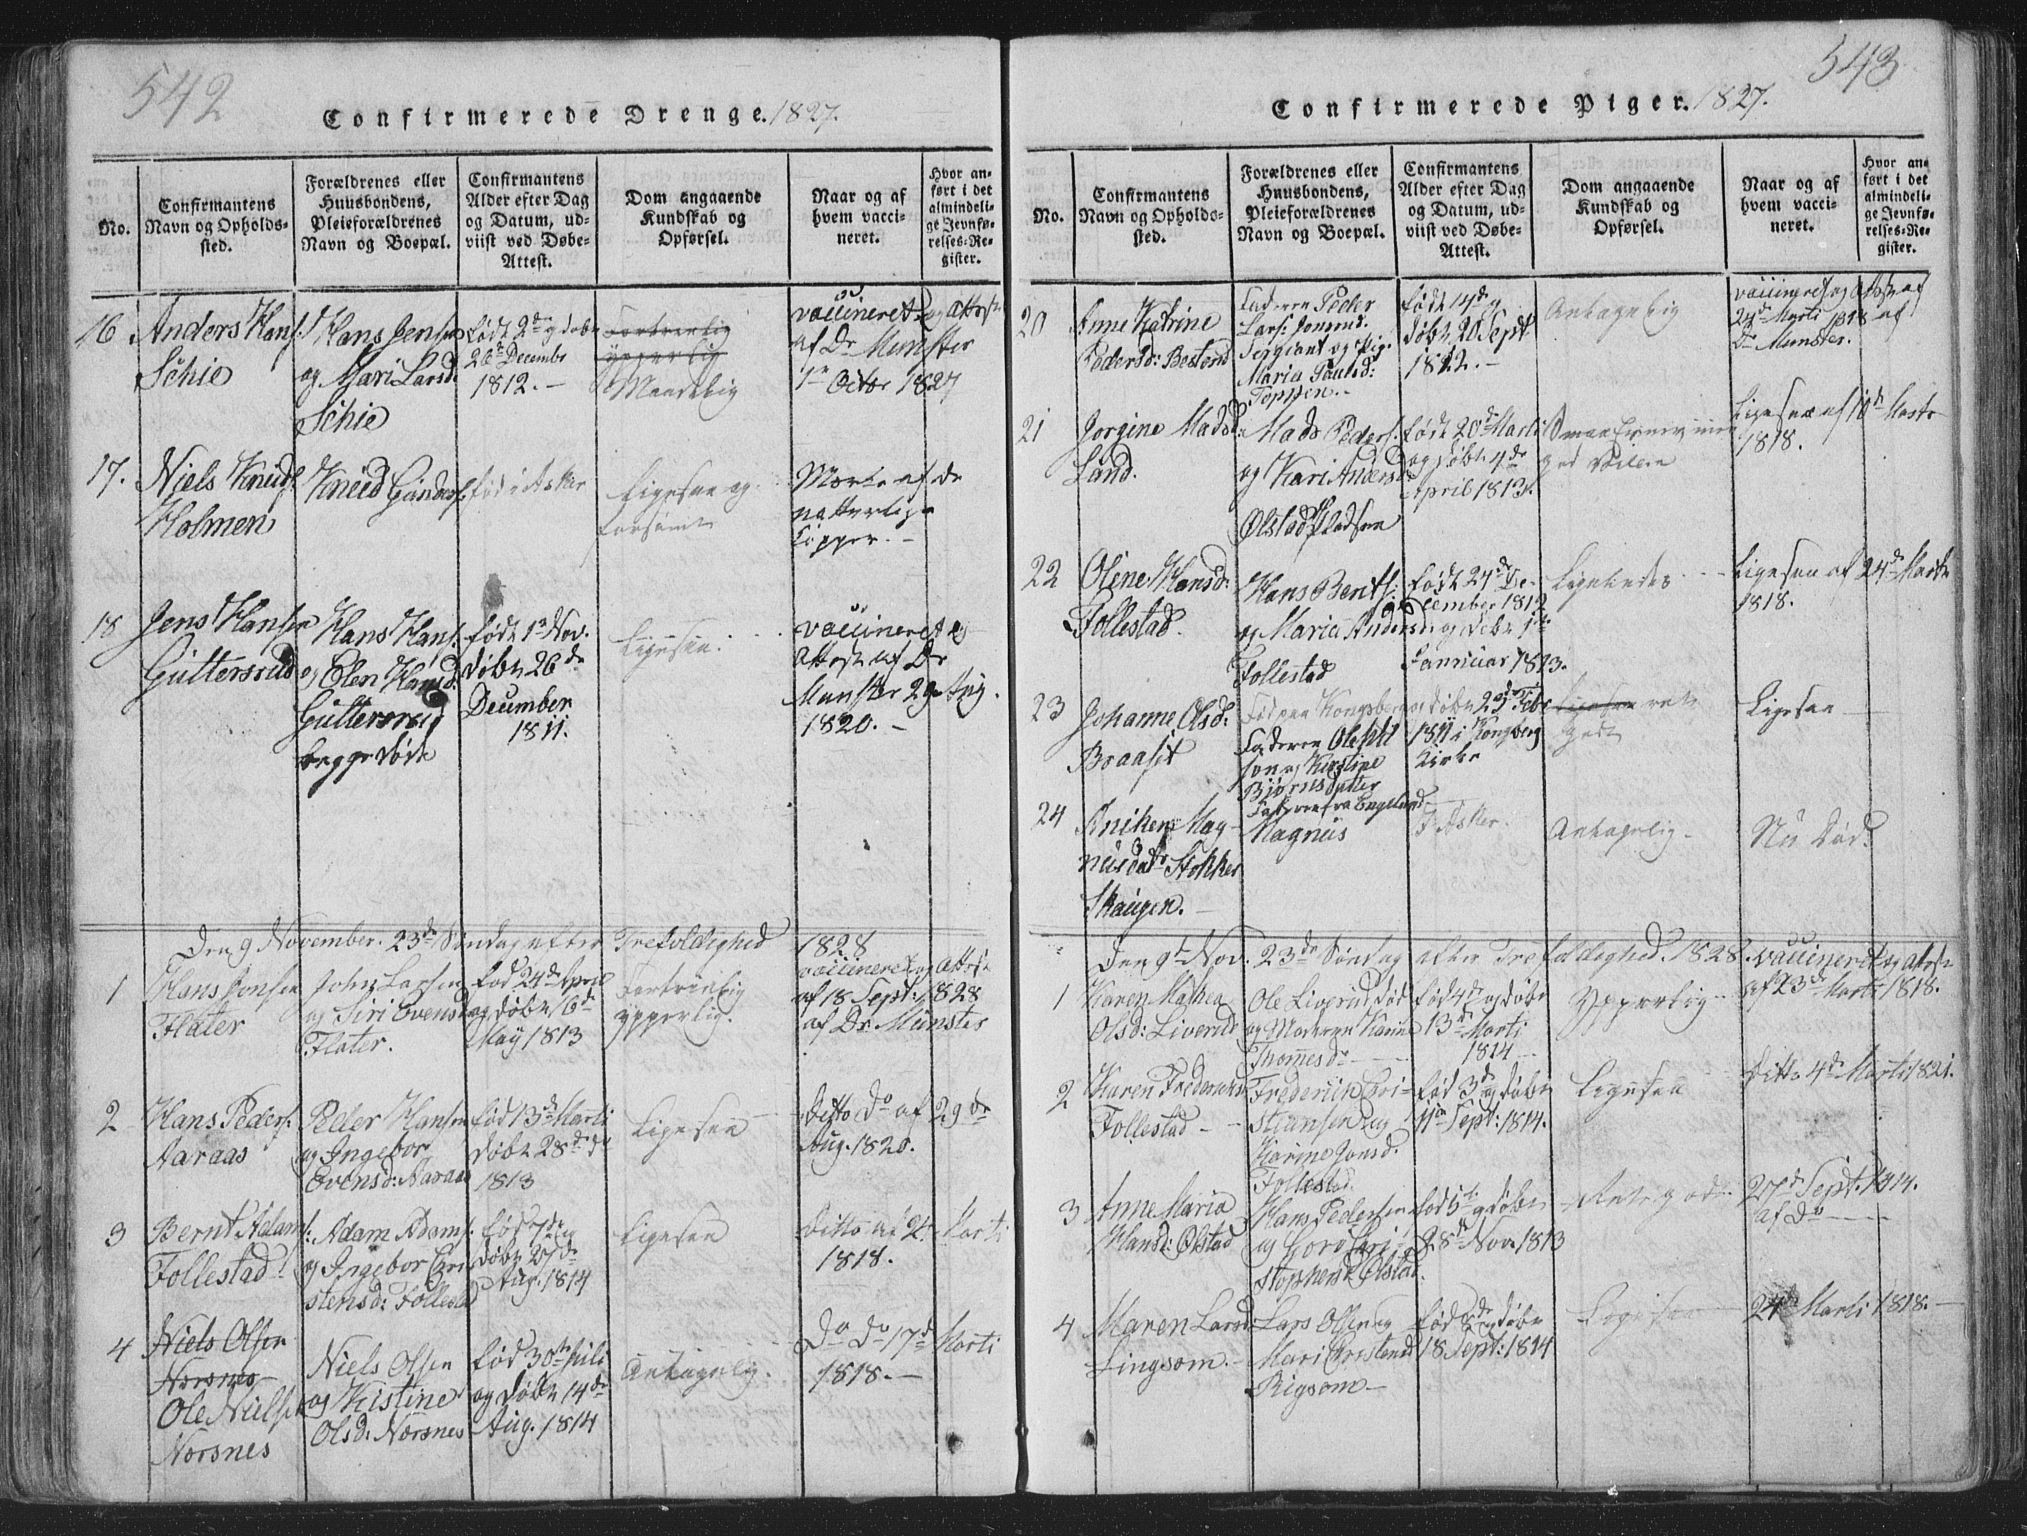 542
Confirmerede Drenge. 1827.
No.
Confirmantens
Navn og Opholds-
sted.
Forældrenes eller
Huusbondens,
Pleieforældrenes
Navn og Boepæl.
Confirmantens
Alder efter Dag
og Datum, ud-
viist ved Døbe-
Attest.
Dom angaaende
Kundskab og
Opførsel.
Naar og af
hvem vacci-
neret.
Hvor an-
ført i det
almindeli-
ge Jevnfø-
relses-Re-
gister.
16
Anders Hans:
Schie
Hans Jensen
og Mari Larsd.
Schie
født 2de og døbt
26de Decembr
1812. -
Fortrinlig
ypperlig
Maadelig
vaccineret og Attest
af Dr Munster
1ste Octbr 1827
17.
Niels Knuds:
Holmen
Knud Gunders:
født i Asker
Ligesaa og
forsømt
Mærke af de
naturlige
Kopper. -
18
Jens Hansen
Guttersrud
Hans Hans:
og Olen Hansd:
Guttersrud
begge døde
født 1te Nov.
døbt 26de
December
1811.
Ligesaa.
vaccineret og
Attest af Dr
Munster 29 Aug.
1820. -
Den 9 November. 23de Søndag efter Trefoldighed 1828
1
Hans Jonsen
Flater
John Larsen
og Siri Evensd
Flater.
fød 24de April
og døbt 16de
May 1813
Fortrinlig
ypperlig.
vaccineret og Attest
af 18 Sept: 1828
af Dr Munster
2
Hans Peders:
Aaraas
Peder Hansen
og Ingebor
Evensd: Aaraas
fød 13de Marti
døbt 28de do
1813
Ligesaa
Ditto Do af 29de
Aug. 1820.
3
Bernt Adams:
Follestad
Adam Adams:
og Ingebor Cri
stensd: Follestad
fød 7de og
døbt 27de
Aug. 1814
Ligesaa
Ditto af 24 Marti
1818.
4
Niels Olsen
Norsnes
Ole Nielsen
Norsnes
Niels Olsen
og Kistine
Olsd. Nærsnes
fød 30te Juli
og døbt 14de
Aug. 1814
Antagelig.
Do Do 17de Marti
1818. -
543
Confirmerede Piger. 1827.
No.
Confirmantens
Navn og Opholds-
sted.
Forældrenes eller
Huusbondens,
Pleieforældrenes
Navn og Boepæl.
Confirmantens
Alder efter Dag
og Datum, ud-
viist ved Døbe-
Attest.
Dom angaaende
Kundskab og
Opførsel.
Naar og af
hvem vacci-
neret.
Hvor an-
ført i det
almindeli-
ge Jevnfø-
relses-Re-
gister.
20
Anne Katrine
Pedersd:
Faderen Peder
Lars:
Sergiant og Pig.
Maria Paulsd:
Toppen. -
født 14de og
døbt 20 Sept
1812. -
Antagelig
vaccineret og Attest af
24de Marti 1818 af
Dr Munster.
21
Jorgine Madsd:
Lund.
Mads Peders:
og Kari Andersd
Ølstad Pladsen
født 20de Marti
og døbt 4de
April 1813.
god
Ligesaa af 10de Marti
1818.
22
Oline Hansd:
Follestad.
Hans Bents:
og Maria Andersd
Follestad
født 27de De-
cember 1812
og døbt 1te
Januar 1813.
Ligeledes
Ligesaa af 24de Marti
1818.
23
Johanne Olsd:
Braaset
Fød paa Kongsberg
Faderen Ole
og Kirstine
Bjørnsdatter
og døbt 23de Febr
1811 i Kongsberg
Kirke
Ligesaa ret
godt
Ligesaa
24
Aniken Mag-
nusdatr Stokker
Skaugen. -
Faderen fra Engeland
Magnus
I Asker.
Antagelig -
Nu Død.
Den 9de Nov. 23de Søndag efter Trefoldighed. 1828.
1
Karen Mathea
Olsd: Liverud
Ole Liverud død
og Moderen Karine
Thomesdr
fød 4de og døbt
13de Marti
1814
Ypperlig
vaccineret og Attest
af 23de Marti 1818.
2
Karen Frederiksd
Follestad
Frederik Cri-
stiansen og
Karine Jonsd.
Follestad
fød 3de og døbt
11te Sept: 1814.
Ligesaa
Ditto 4de Marti 1821.
3
Anne Maria
Hansd: Ølstad
Hans Pedersen
og Gord Cri-
stophersd Ølstad.
fød 5te og døbt
28de Nov. 1813
Ret god.
27de Sept. 1814.
af Do
4
Maren Larsd
Lingsom. -
Lars Olsen og
Mari Christensd
Rigsom -
fød 2de og døbt
18 Sept: 1814
Ligesaa
24de Marti 1818. -